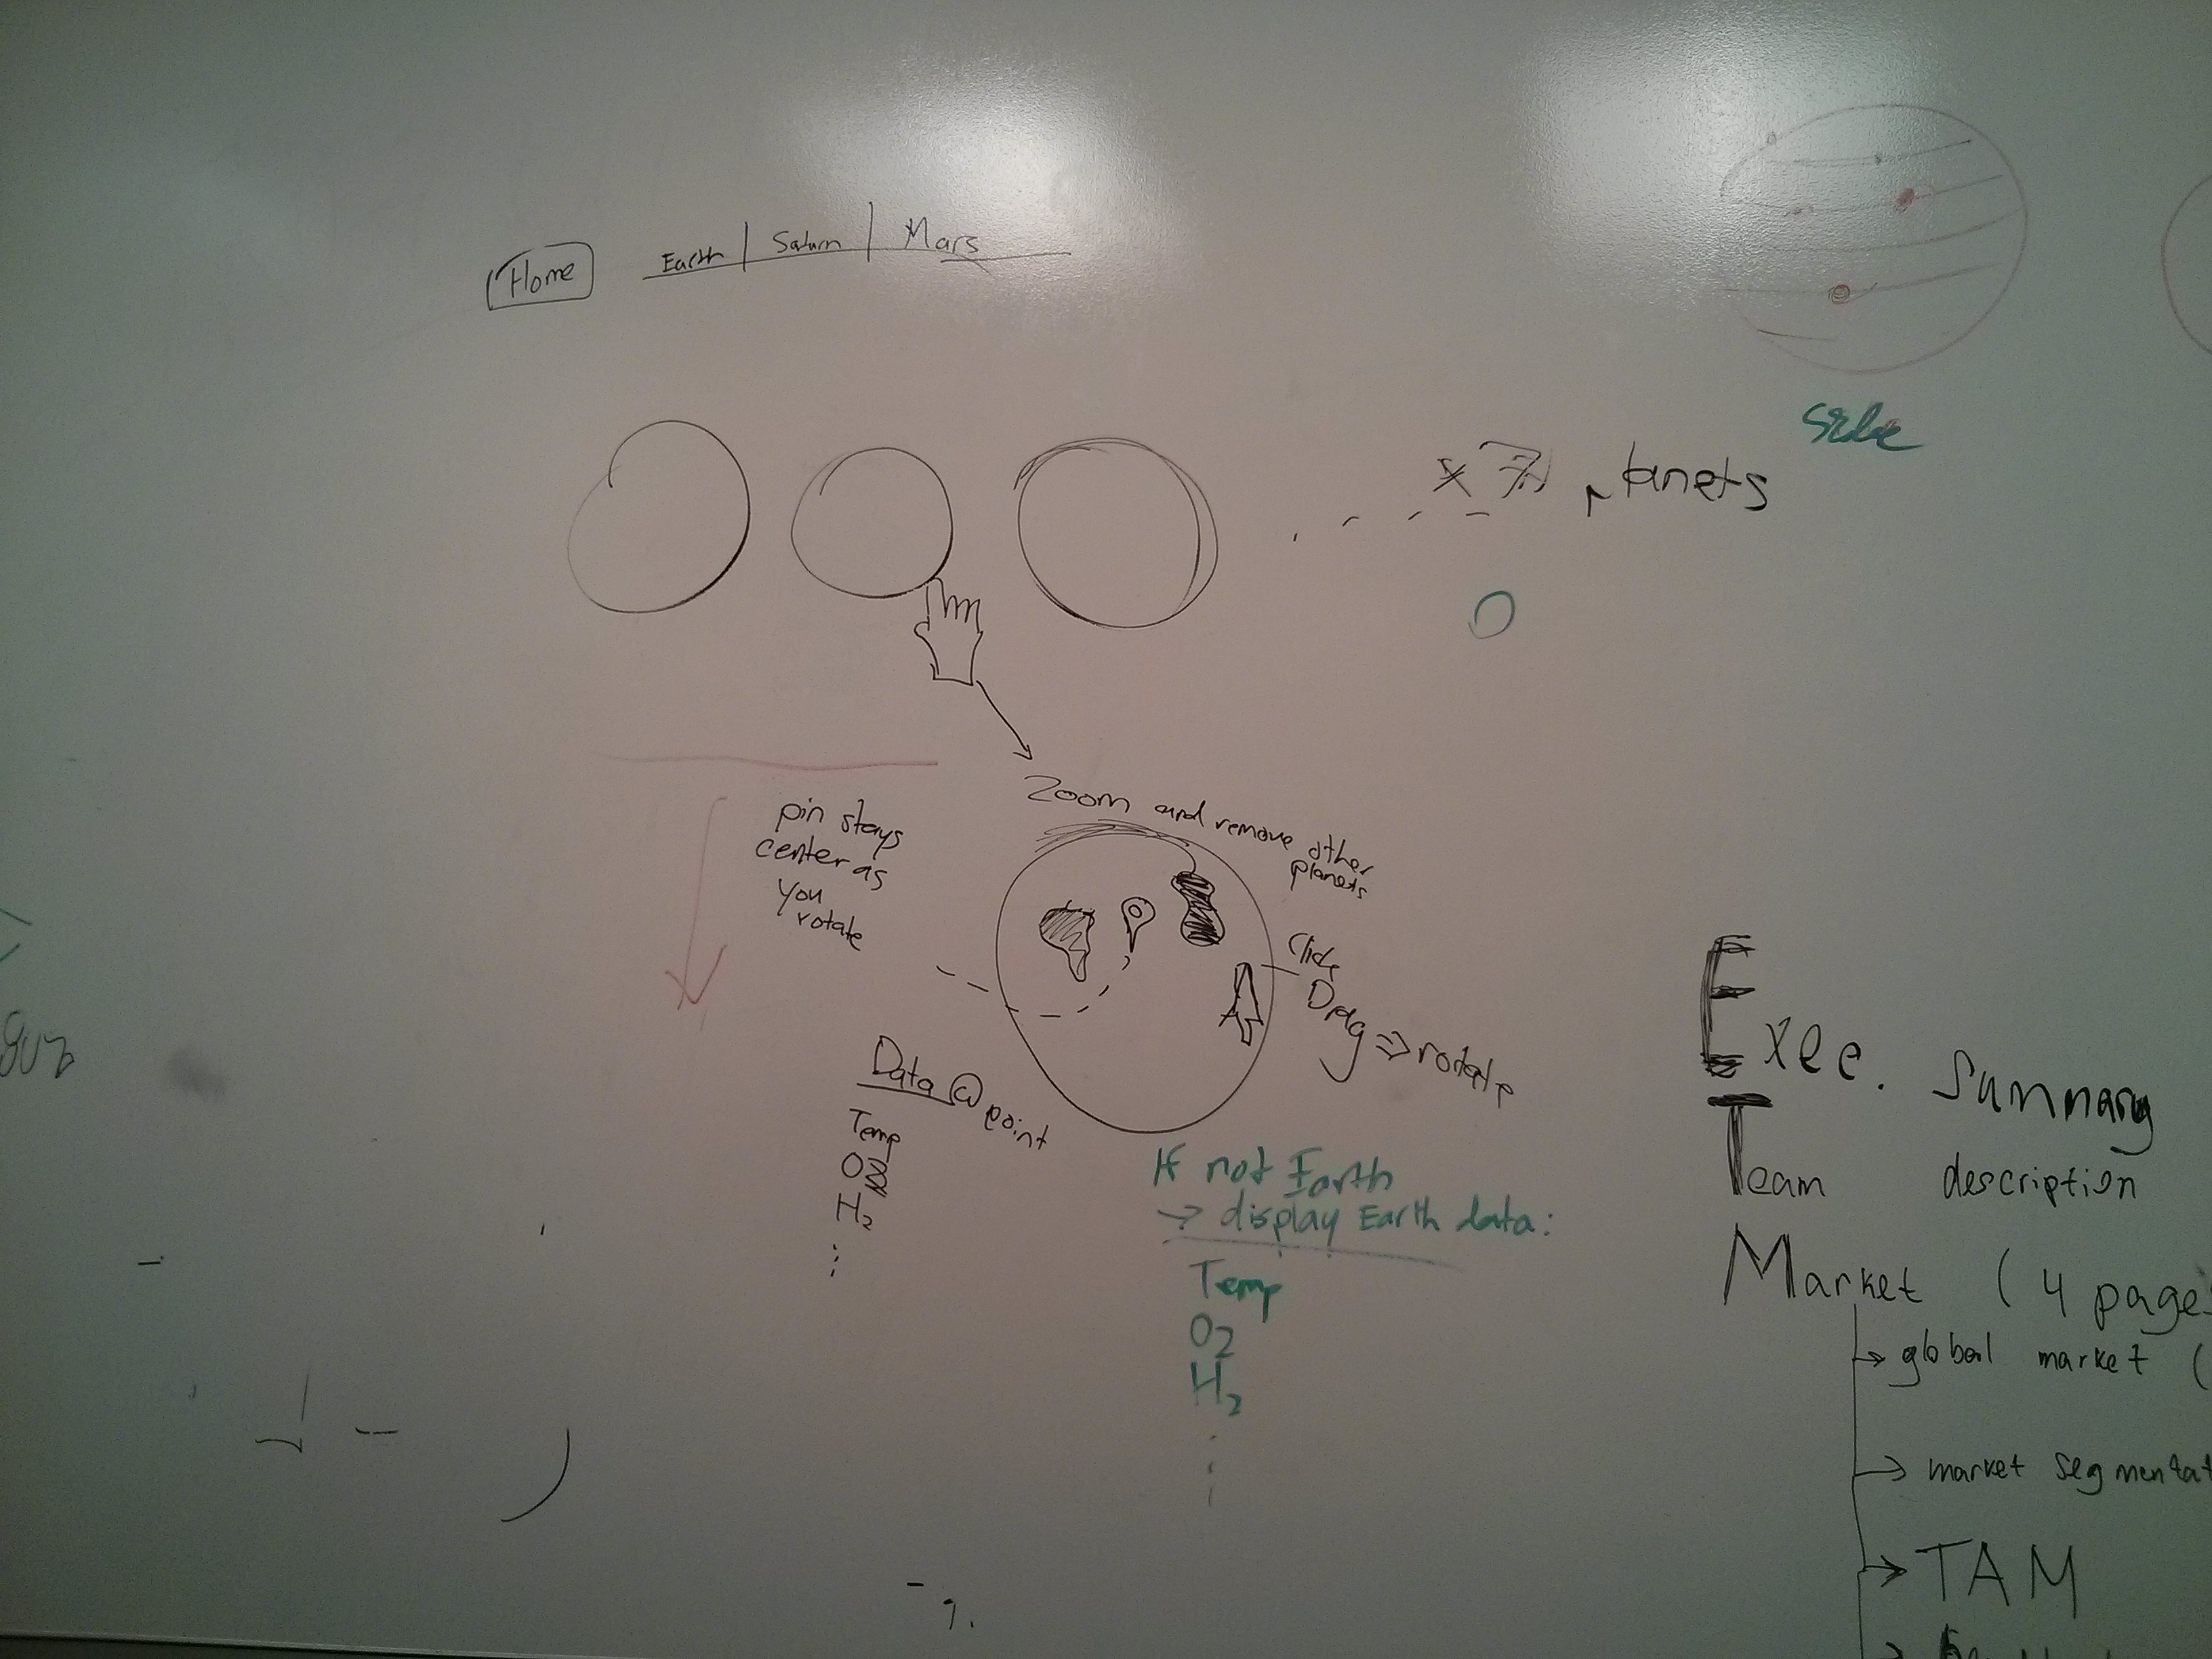 Home
Earth | Saturn | Mars
side
planets
Zoom and remove other
planets
pin stays
center as
you
rotate
Click
Drag => rotate
Data @ point
Temp
O
H2
If not Earth
→ display Earth data:
Temp
O2
H2
Exec. Summary
Team description
Market (4 page
→ global market (
→ market segmentat
→ TAM